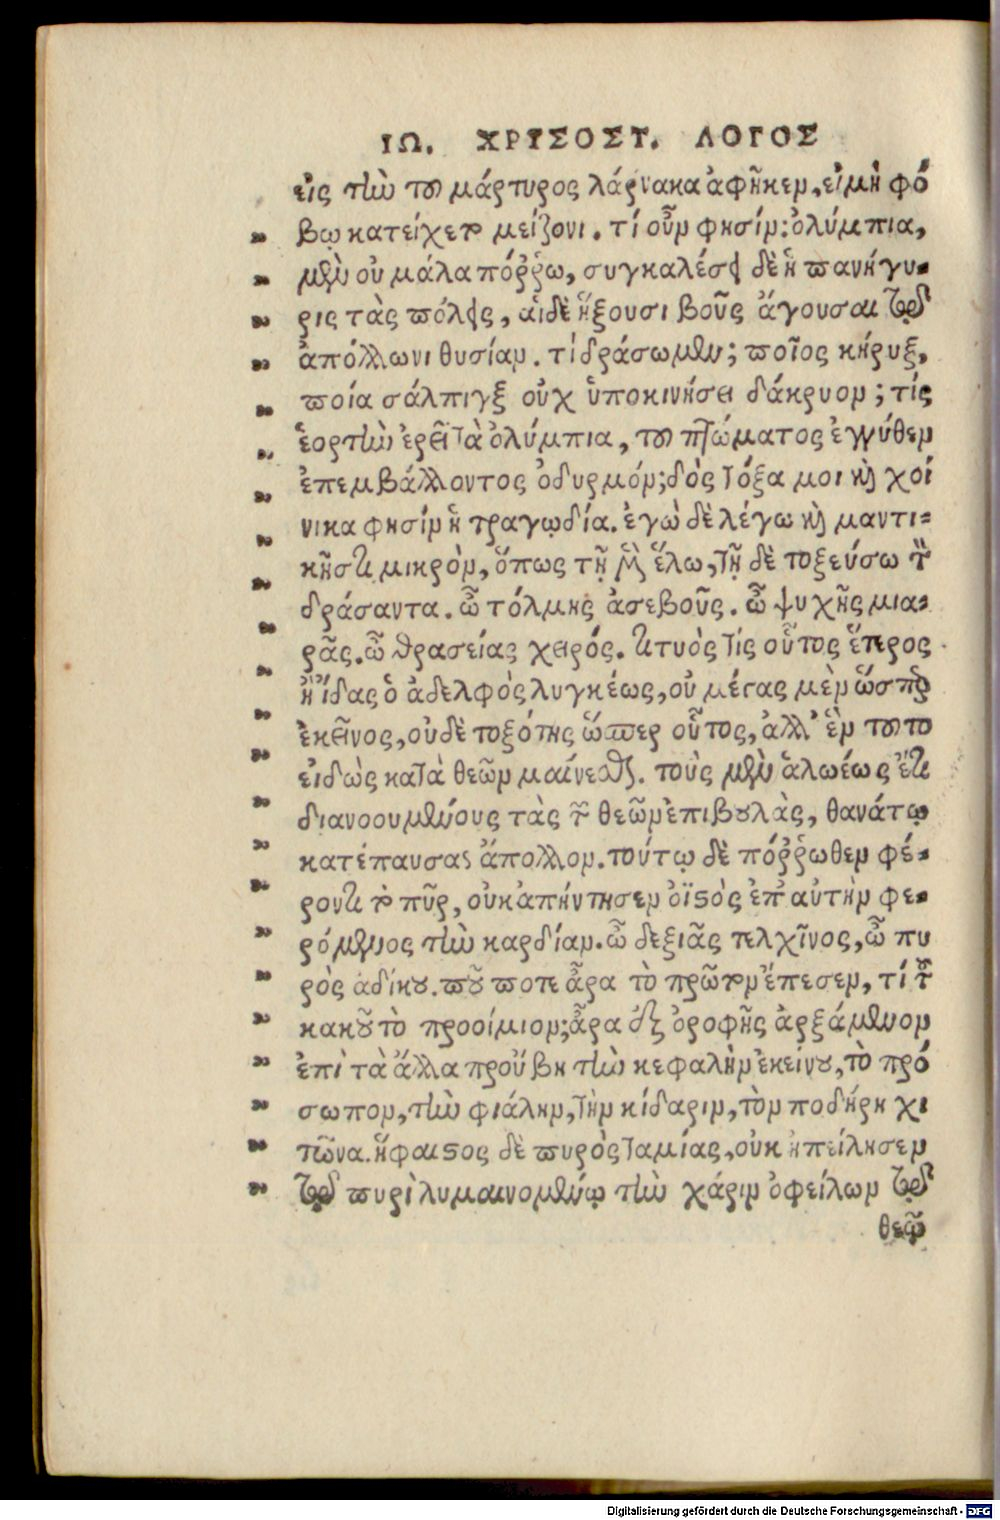 ΙΩ. ΧΡΥΣΟΣΤ. ΛΟΓΟΣ
εἰς τὴν τοῦ μάρτυρος λάρνακα ἀφῆκεν, εἰ μὴ φό
βῳ κατείχετο μείζονι. τί οὖν φησίν; ὀλύμπια,
μὲν οὐ μάλα πόῤῥω, συγκαλέσει δὲ ἡ πανήγυ-
ρις τὰς πόλεις, αἱ δὲ ἥξουσι βοῦς ἄγουσαι τῷ
ἀπόλλωνι θυσίαν. τί δράσωμεν; ποῖος κήρυξ,
ποία σάλπιγξ οὐχ ὑποκινήσει δάκρυον; τίς
ἑορτὴν ἐρεῖ τὰ ὀλύμπια, τοῦ πτώματος ἐγγύθεν
ἐπεμβάλλοντος ὀδυρμόν; δὸς τόξα μοι καὶ χοί
νικα φησὶν ἡ τραγῳδία. ἐγὼ δὲ λέγω καὶ μαντι-
κῆς τι μικρὸν, ὅπως τῇ μὲν ἕλω, τῇ δὲ τοξεύσω τὸν
δράσαντα. ὢ τόλμης ἀσεβοῦς. ὢ ψυχῆς μια-
ρᾶς. ὢ θρασείας χειρός. τιτυὸς τίς οὗτος ἕτερος
ἢ ἴδας ὁ ἀδελφὸς λυγκέως, οὐ μέγας μὲν ὥσπερ
ἐκεῖνος, οὐδὲ τοξότης ὥσπερ οὗτος, ἀλλ' ἓν τοῦτο
εἰδὼς κατὰ θεῶν μαίνεσθαι. τοὺς μὲν ἀλωέως ἔτι
διανοουμένους τὰς τῶν θεῶν ἐπιβουλὰς, θανάτῳ
κατέπαυσας ἄπολλον. τούτῳ δὲ πόῤῥωθεν φέ-
ροντι τὸ πῦρ, οὐκ ἀπήντησεν ὀϊστὸς ἐπ' αὐτὴν φε-
ρόμενος τὴν καρδίαν. ὢ δεξιᾶς τελχῖνος, ὢ πυ
ρὸς ἀδίκου. ποῦ ποτε ἄρα τὸ πρῶτον ἔπεσεν, τί τοῦ
κακοῦ τὸ προοίμιον; ἄρα ἐκ τῆς ὀροφῆς ἀρξάμενον
ἐπὶ τὰ ἄλλα προὔβη τὴν κεφαλὴν ἐκείνου, τὸ πρό
σωπον, τὴν φιάλην, τὴν κίδαριν, τὸν ποδήρη χι
τῶνα. ἥφαιστος δὲ πυρὸς ταμίας, οὐκ ἠπείλησεν
τῷ πυρὶ λυμαινομένῳ τὴν χάριν ὀφείλων τῷ
θεῷ
Digitalisierung gefördert durch die Deutsche Forschungsgemeinschaft - DFG